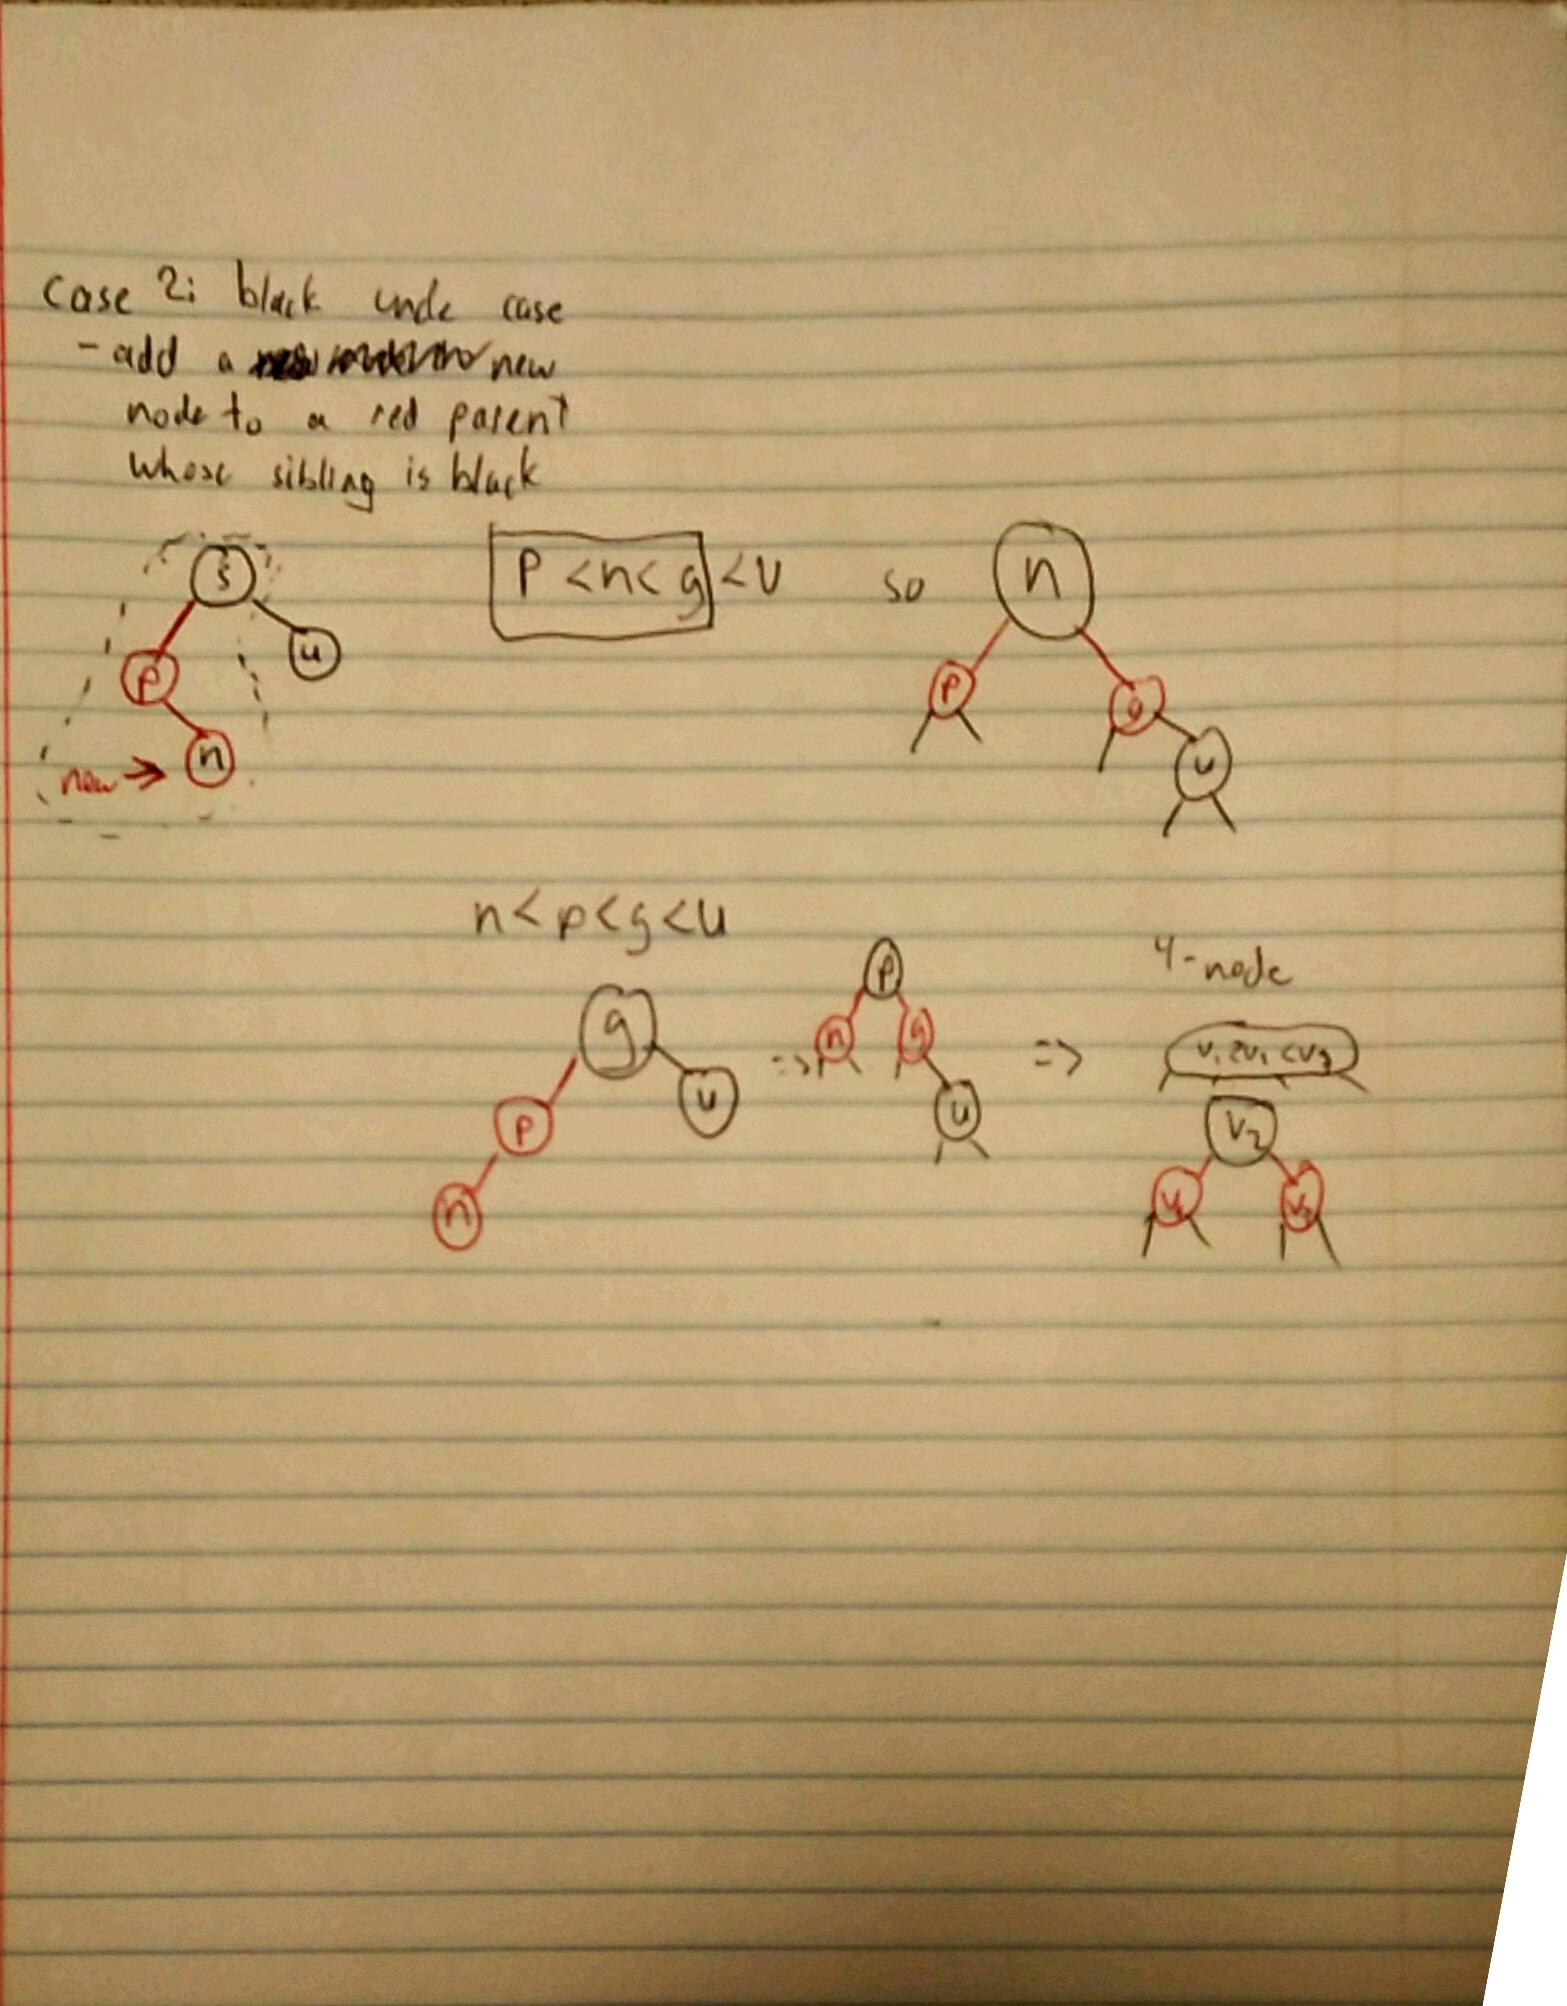 Case 2: black uncle case
- add a new
node to a red parent
whose sibling is black
g
p
u
new → n
P < n < g < U so
n
p
g
u
n < p < g < u
g
p
u
n
=>
p
n
g
u
=>
4-node
V2
V1